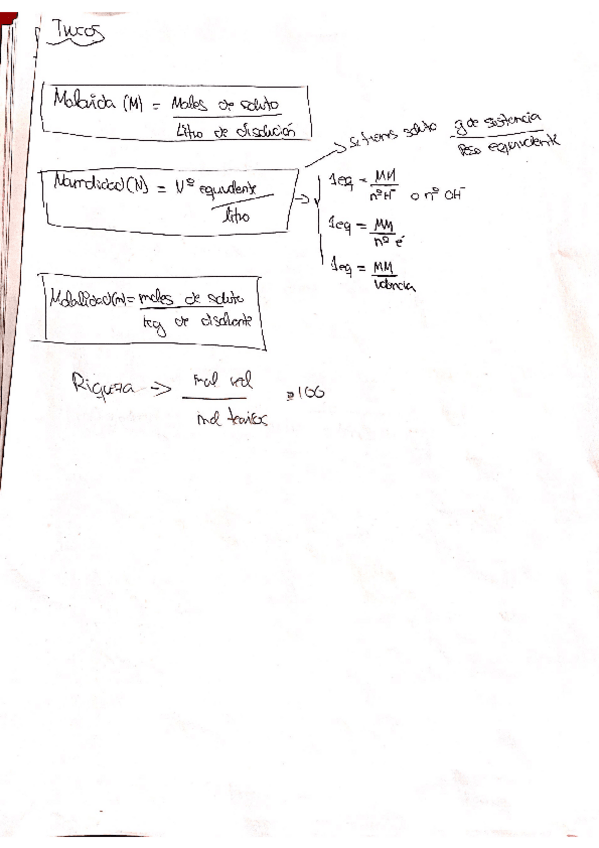 Trucos
Molarida (M) = Moles de soluto / Litro de disolución
Normalidad (N) = Nº equivalente / litro
→ si tienes soluto g de sustancia / Peso equivalente
→ 1eq = MM / nºH⁻ o nº OH⁻
1eq = MM / nº é
1eq = MM / valencia
Molalidad (m) = moles de soluto / kg de disolvente
Riqueza → mol real / mol teóricos · 100